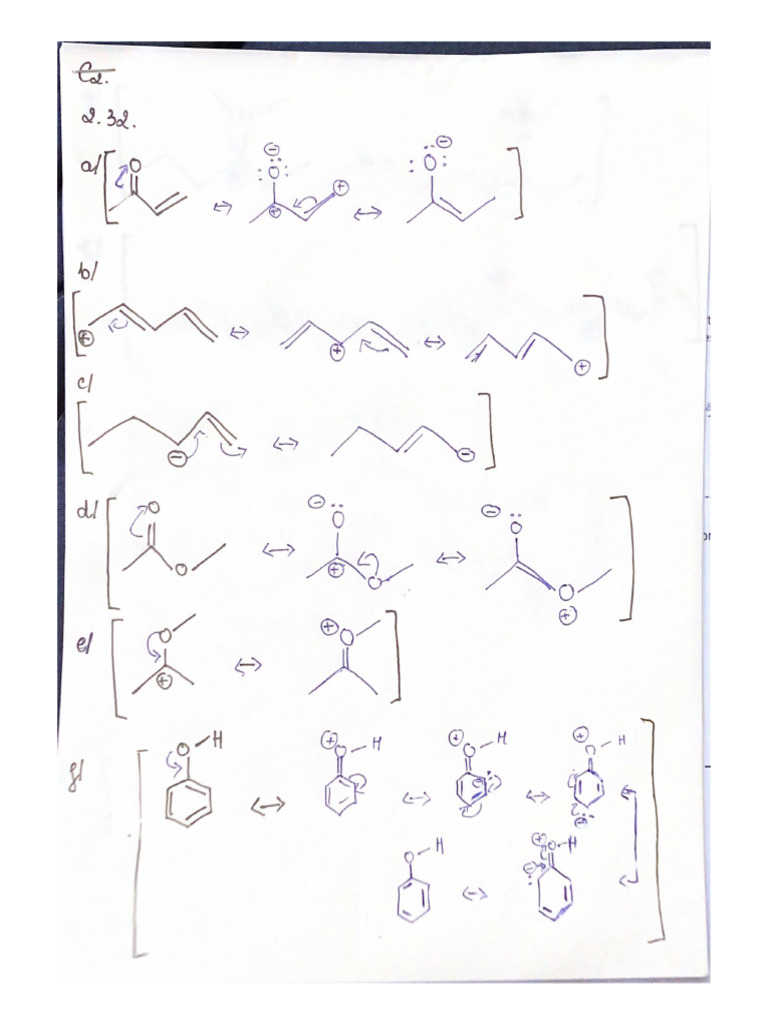 C2.
2.32.
a/ [ O ↔ ⊖ :O: ⊕ ⊕ ↔ ⊖ :O: ]
b/
[ ⊕ ↔ ⊕ ↔ ⊕ ]
c/
[ ⊖ ↔ ⊖ ]
d/ [ O O ↔ ⊖ O ⊕ O ↔ ⊖ O O ⊕ ]
e/ [ O ⊕ ↔ ⊕ O ]
f/ [ O-H ↔ ⊕ O-H ↔ ⊕ O-H ⊖ ↔ ⊕ O-H ⊖
O-H ↔ ⊕ O-H ⊖ ]